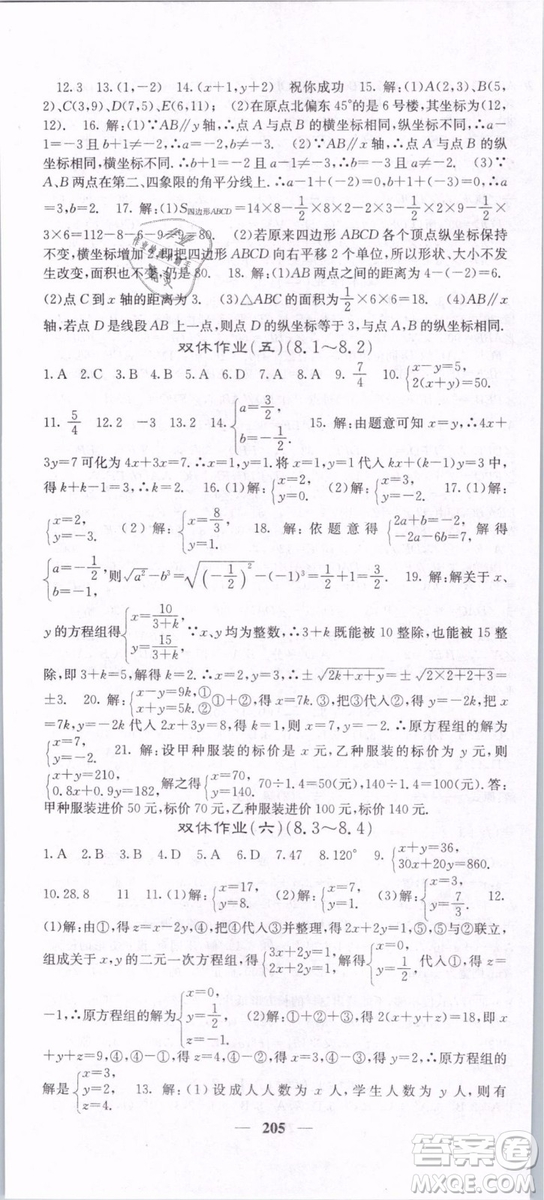 12.3　13.(1,-2)　14.(x+1,y+2)　祝你成功　15. 解:(1)A(2,3),B(5,
2),C(3,9),D(7,5),E(6,11);　(2)在原点北偏东45°的是6号楼,其坐标为(12,
12)　16. 解:(1)∵AB∥y轴,∴点A与点B的横坐标相同,纵坐标不同,∴
a-1=-3.∴a=-2.b+1≠-2.∴b≠-3.　(2)∵AB∥x轴,∴点A与点B的纵
坐标相同,横坐标不同.∴b+1=-2.∴b=-3.a-1≠-3.∴a≠-2.　(3)∵
A、B两点在第二、四象限的角平分线上.∴a-1+(-2)=0,b+1+(-3)=0,∴
a=3,b=2.　17. 解:(1)S四边形ABCD=14×8-1/2×8×2-1/2×2×9-1/2
×3×6=112-8-6-9-9=80.　(2)若原来四边形ABCD各个顶点纵坐标保持
不变,横坐标增加2,即把四边形ABCD向右平移2个单位,所以形状、大小不发
生改变,面积不变,仍是80.　18. 解:(1)AB两点之间的距离为4-(-2)=6.
(2)点C到x轴的距离为3.　(3)△ABC的面积为1/2×6×6=18.　(4)存在点
M,若点D是线段AB上的点,点D的纵坐标等于3,横坐标大于等于-2小于等于4.
双休作业(五)(8.1～8.2)
1.A　2.C　3.A　4.C　5.D　6.A　7.B　8.A　9.7/4　10.{x-y=5, 2(x+y)=50.
11.5/4　12.2　-3　13.2　14.{a=3/2, b=-1/2　15. 解:由题意可知x=y,∴4x+
3y=7可化为4x+3x=7.∴x=1,y=1.将x=1,y=1代入kx+(k-1)y=3中,
得k+k-1=3,∴k=2.　16.(1)解:{x=2, y=0.　(2)解:{x=1, y=1.　17.(1)解:
{x=2, y=-3.　(2)解:{x=8/3, y=1.　18. 解:依题意得{2a+b=-2, -2a-6b=7.解得
{a=-1/2, b=-1,则√(a²-b³)=√((-1/2)²-(-1)³)=√(1/4+1)=√5/2　19. 解:解关于x、
y的方程组得{x=10/(3+k), y=15/(3+k)∵x、y均为整数,∴3+k既能被10整除,也能被15整
除,即3+k=5.解得k=2.∴x=2,y=3,∴±√(2k+x+y)=±√(2×2+2+3)=
±3.　20. 解:{x-y=9k,① x+y=5k,②①+②得2x=14k,即x=7k,∴y=-2k.把x
=7k,y=-2k代入2x+3y=8,得14k-6k=8,∴k=1,∴原方程组的解为
{x=7, y=-2.　21. 解:设甲种服装的标价是x元,乙种服装的标价为y元,则
{x+y=210, 0.8x+0.9y=182,解之得{x=70, y=140,70÷1.4=50(元),140÷1.4=100(元).答:
甲种服装进价50元,标价70元,乙种服装进价100元,标价140元.
双休作业(六)(8.3～8.4)
1.A　2.B　3.C　4.A　5.D　6.D　7.47　8.120°　9.{x+y=36, 30x+20y=860.
10.28.8　11　11.(1)解:{x=17, y=8.　(2)解:{x=60, y=40.　(3)解:{x=1, y=7/3　12.
(1)解:由①,得z=-x-y④,把④代入③并整理,得3x+2y=1⑤与②联立,
组成关于x,y的二元一次方程组,得{3x+2y=1, 2x+2y=1.解得{x=0, y=1/2,代入④得z=
-1,∴原方程组的解为{x=0, y=1/2, z=-1.　(2)解:①+②+③,得2(x+y+z)=18,即x
+y+z=9,④,④-①得z=4,④-②得x=3,④-③得y=2,∴原方程组的
解是{x=3, y=2, z=4.　13. 解:(1)设成人人数为x人,学生人数为y人,则有
205
答案圈
MXQE.COM